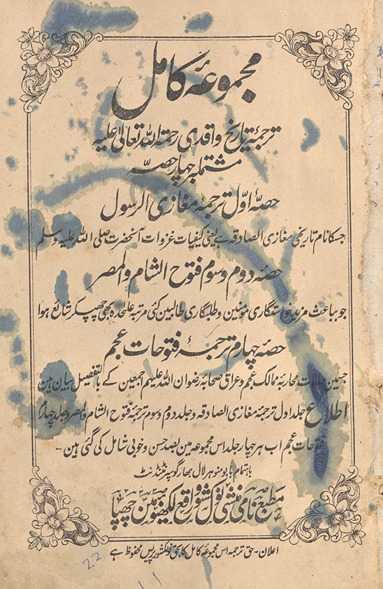 مجموعہ کامل
ترجمۂ تاریخ واقدی رحمۃ اللہ تعالیٰ علیہ
مشتملہ چہار حصہ
حصۂ اوّل ترجمۂ مغازی الرسول
جسکا نام تاریخی مغازی الصادقہ ہے یعنی کیفیات غزوات آنحضرت صلی اللہ علیہ وسلم
حصہ دوم و سوم فتوح الشام والمصر
جو بباعث مزید خواستگاری مومنین و طلبگاری طالبین کئی مرتبہ علیٰحدہ بھی چھپکر شائع ہوا
حصۂ چہارم ترجمۂ فتوحات عجم
جسمین حالات محاربۂ ممالک عجم و عراق صحابہ رضوان اللہ علیہم اجمعین کے بالتفصیل بیان ہین
اطلاع جلد اول ترجمۂ مغازی الصادقہ و جلد دوم و سوم ترجمۂ فتوح الشام والمصر و جلد چہارم
فتوحات عجم اب ہر چہار جلد اس مجموعہ مین بصد حسن و خوبی شامل کی گئی ہین
باہتمام بابو منوہر لال بھارگو سپرنٹنڈنٹ
مطبع نامی منشی نولکشور واقع لکھنؤ مین چھپا
اعلان - حق ترجمہ اس مجموعہ کامل کا بحق نولکشور پریس محفوظ ہے
22